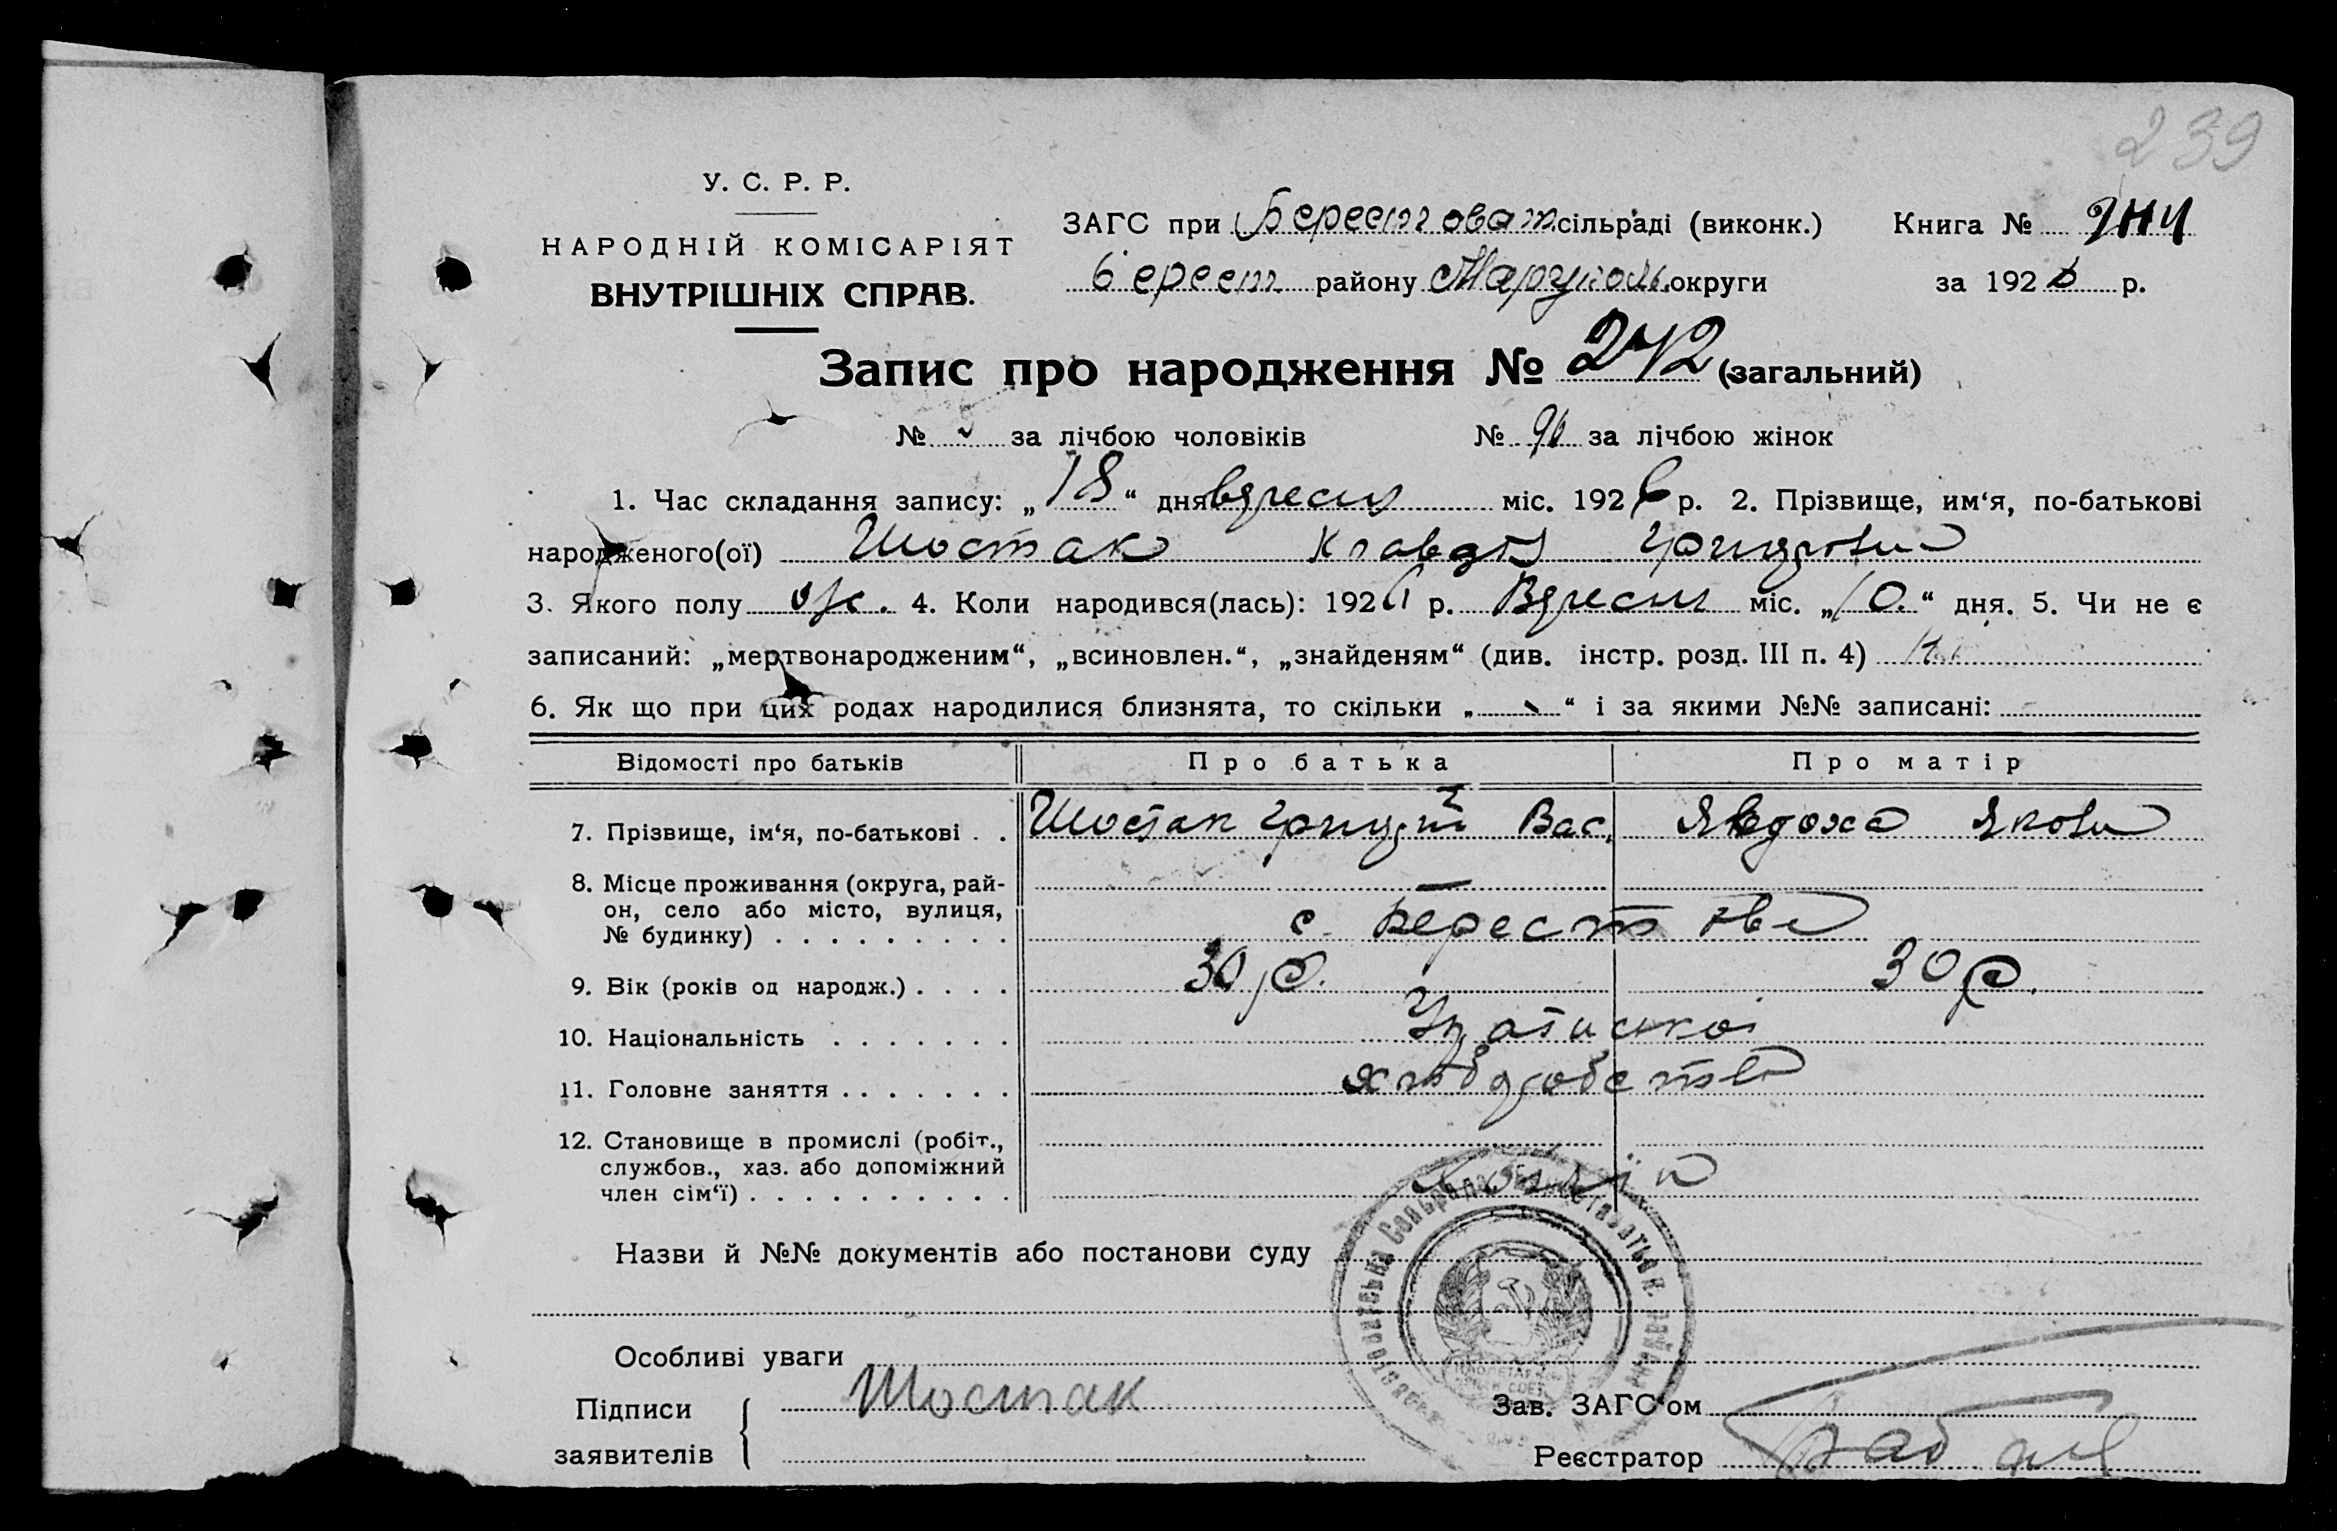 239
У. С. Р. Р.
НАРОДНІЙ КОМІСАРІЯТ
ВНУТРІШНІХ СПРАВ.
ЗАГС при Берестоват. сільраді (виконк.) Книга №
Берест району Маруполь. округи за 1926 р.
Запис про народження № 242 (загальний)
№ за лічбою чоловіків № 96 за лічбою жінок
1. Час складання запису: „18“ дня вересня міс. 1926 р. 2. Прізвище, им‘я, по-батькові
народженого(ої) Шостак Клавдія
3. Якого полу ж. 4. Коли народився(лась): 1926 р. Вересня міс. „10.“ дня. 5. Чи не є
записаний: „мертвонародженим“, „всиновлен.“, „знайденям“ (див. інстр. розд. III п. 4)
6. Як що при цих родах народилися близнята, то скільки „-“ і за якими №№ записані: -
Відомості про батьків Про батька Про матір
7. Прізвище, ім‘я, по-батькові . . Шостак Вас. Явдоха Якови
8. Місце проживання (округа, рай-
он, село або місто, вулиця,
№ будинку) . . . . . . . . . с. Берестове
9. Вік (років од народж.) . . . . 30 р. 30 р.
10. Національність . . . . . . .
11. Головне заняття . . . . . . . хліборобство
12. Становище в промислі (робіт.,
службов., хаз. або допоміжний
член сім‘ї) . . . . . . . . . . .
Назви й №№ документів або постанови суду
Особливі уваги
Підписи
заявителів
Шостак
Зав. ЗАГС‘ом
Реєстратор